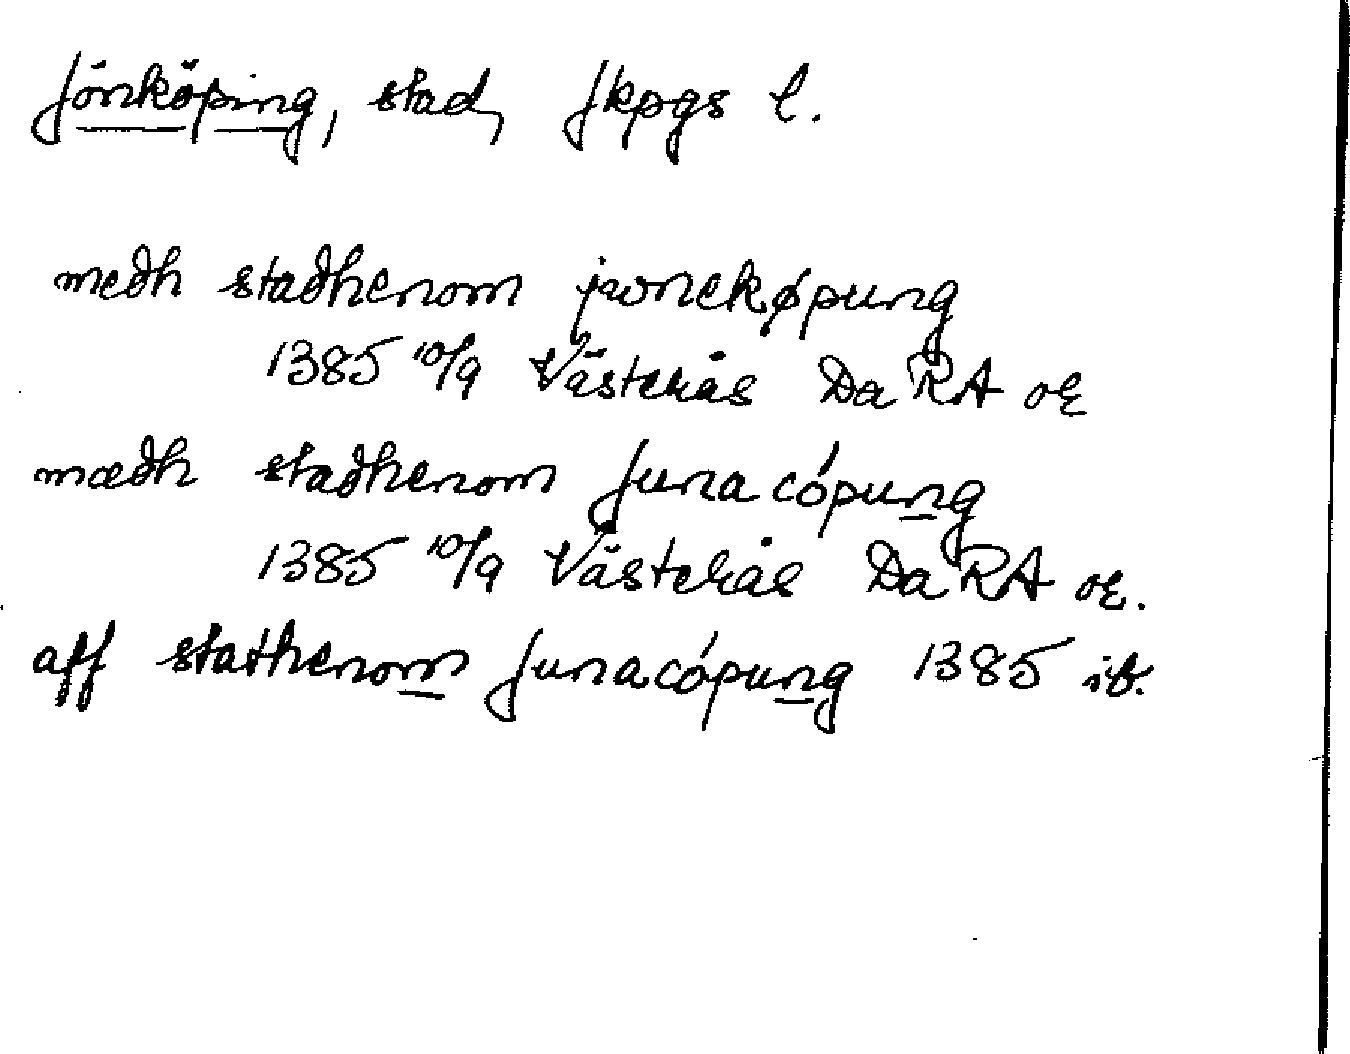 Jönköping, stad, Jkpgs l.
meðh staðhenom jwnekøpung
1385 10/9 Västerås Da RA or
mæðh staðhenom Junacópung
1385 10/9 Västerås Da RA or.
aff stathenom Junacópung 1385 ib.